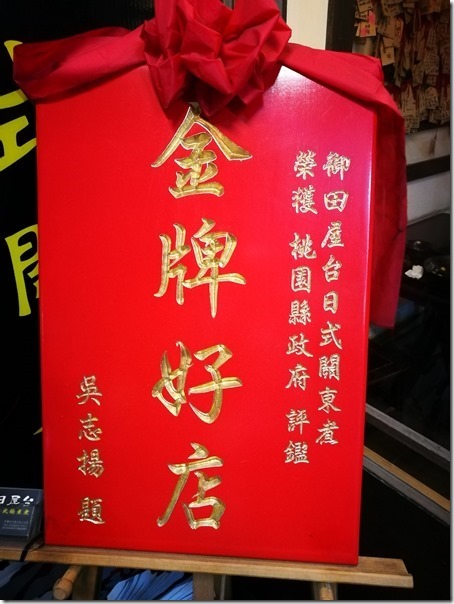 御田屋台日式關東煮
榮獲 桃園縣政府 評鑑
金牌好店
吳志揚 題